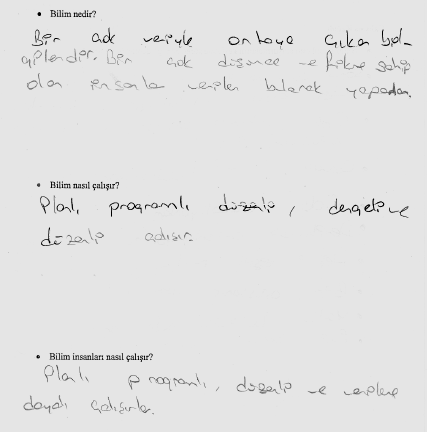 • Bilim nedir?
Bir çok veriyle ortaya çıkan bil-
gilerdir. Bir çok düşünce ve fikre sahip
olan insanlar veriler bularak yaparlar.
• Bilim nasıl çalışır?
Planlı, programlı düzenli, dengeli ve
düzenli çalışır.
• Bilim insanları nasıl çalışır?
Planlı programlı, düzenli ve verilere
dayalı çalışırlar.